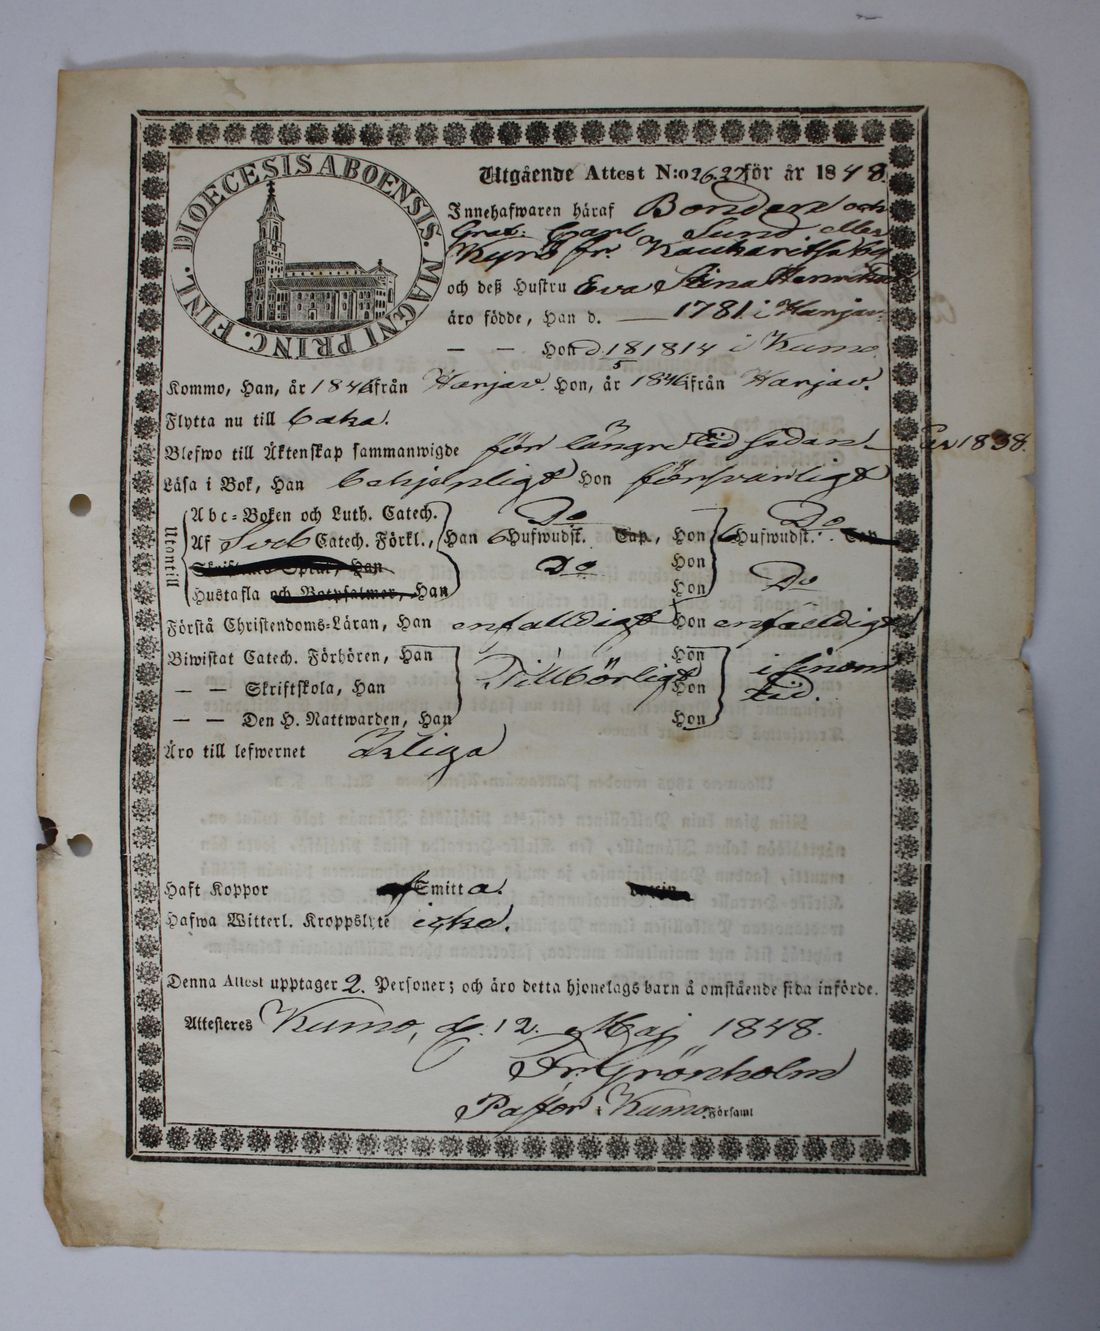 DIOECESIS ABOENSIS. MAGNI PRINC. FINL.
Utgående Attest N:o 262 för år 1848.
Innehafwaren häraf Bonden och
Carl Sund eller
Kyrö fr.
och deß Hustru Eva Stina
äro födde, Han d. — 1781 i Harjav.
— — Hon d 18/5 1814 i Kumo.
Kommo, Han, år 1846 ifrån Harjav. Hon, år 1846 ifrån Harjav.
Flytta nu till baka.
Blefwo till Äktenskap sammanwigde för längre tid sedan 1838.
Läsa i Bok, Han behjerligt Hon försvarligt
Utontill
Abc-Boken och Luth. Catech. Do Do
Af Sveb Catech. Förkl., Han 6 Hufwudst. Cap., Hon 6 Hufwudst. Cap
Skriftens Språk, Han Do Hon
Hustafla och Botpsalmer, Han Hon Do
Förstå Christendoms-Läran, Han enfalldigt Hon enfaldigt
Biwistat Catech. Förhören, Han Hon
— — Skriftskola, Han Tillbörligt Hon i sinom tid.
— — Den H. Nattwarden, Han Hon
Äro till lefwernet Ärliga
Haft Koppor Smitta.
Hafwa Witterl. Kroppslyte icke.
Denna Attest upptager 2 Personer; och äro detta hjonelags barn å omstående sida införde.
Attesteres Kumo, d. 12. Maj 1848.
Fr. Grönholm
Pastor i Kumo Församl